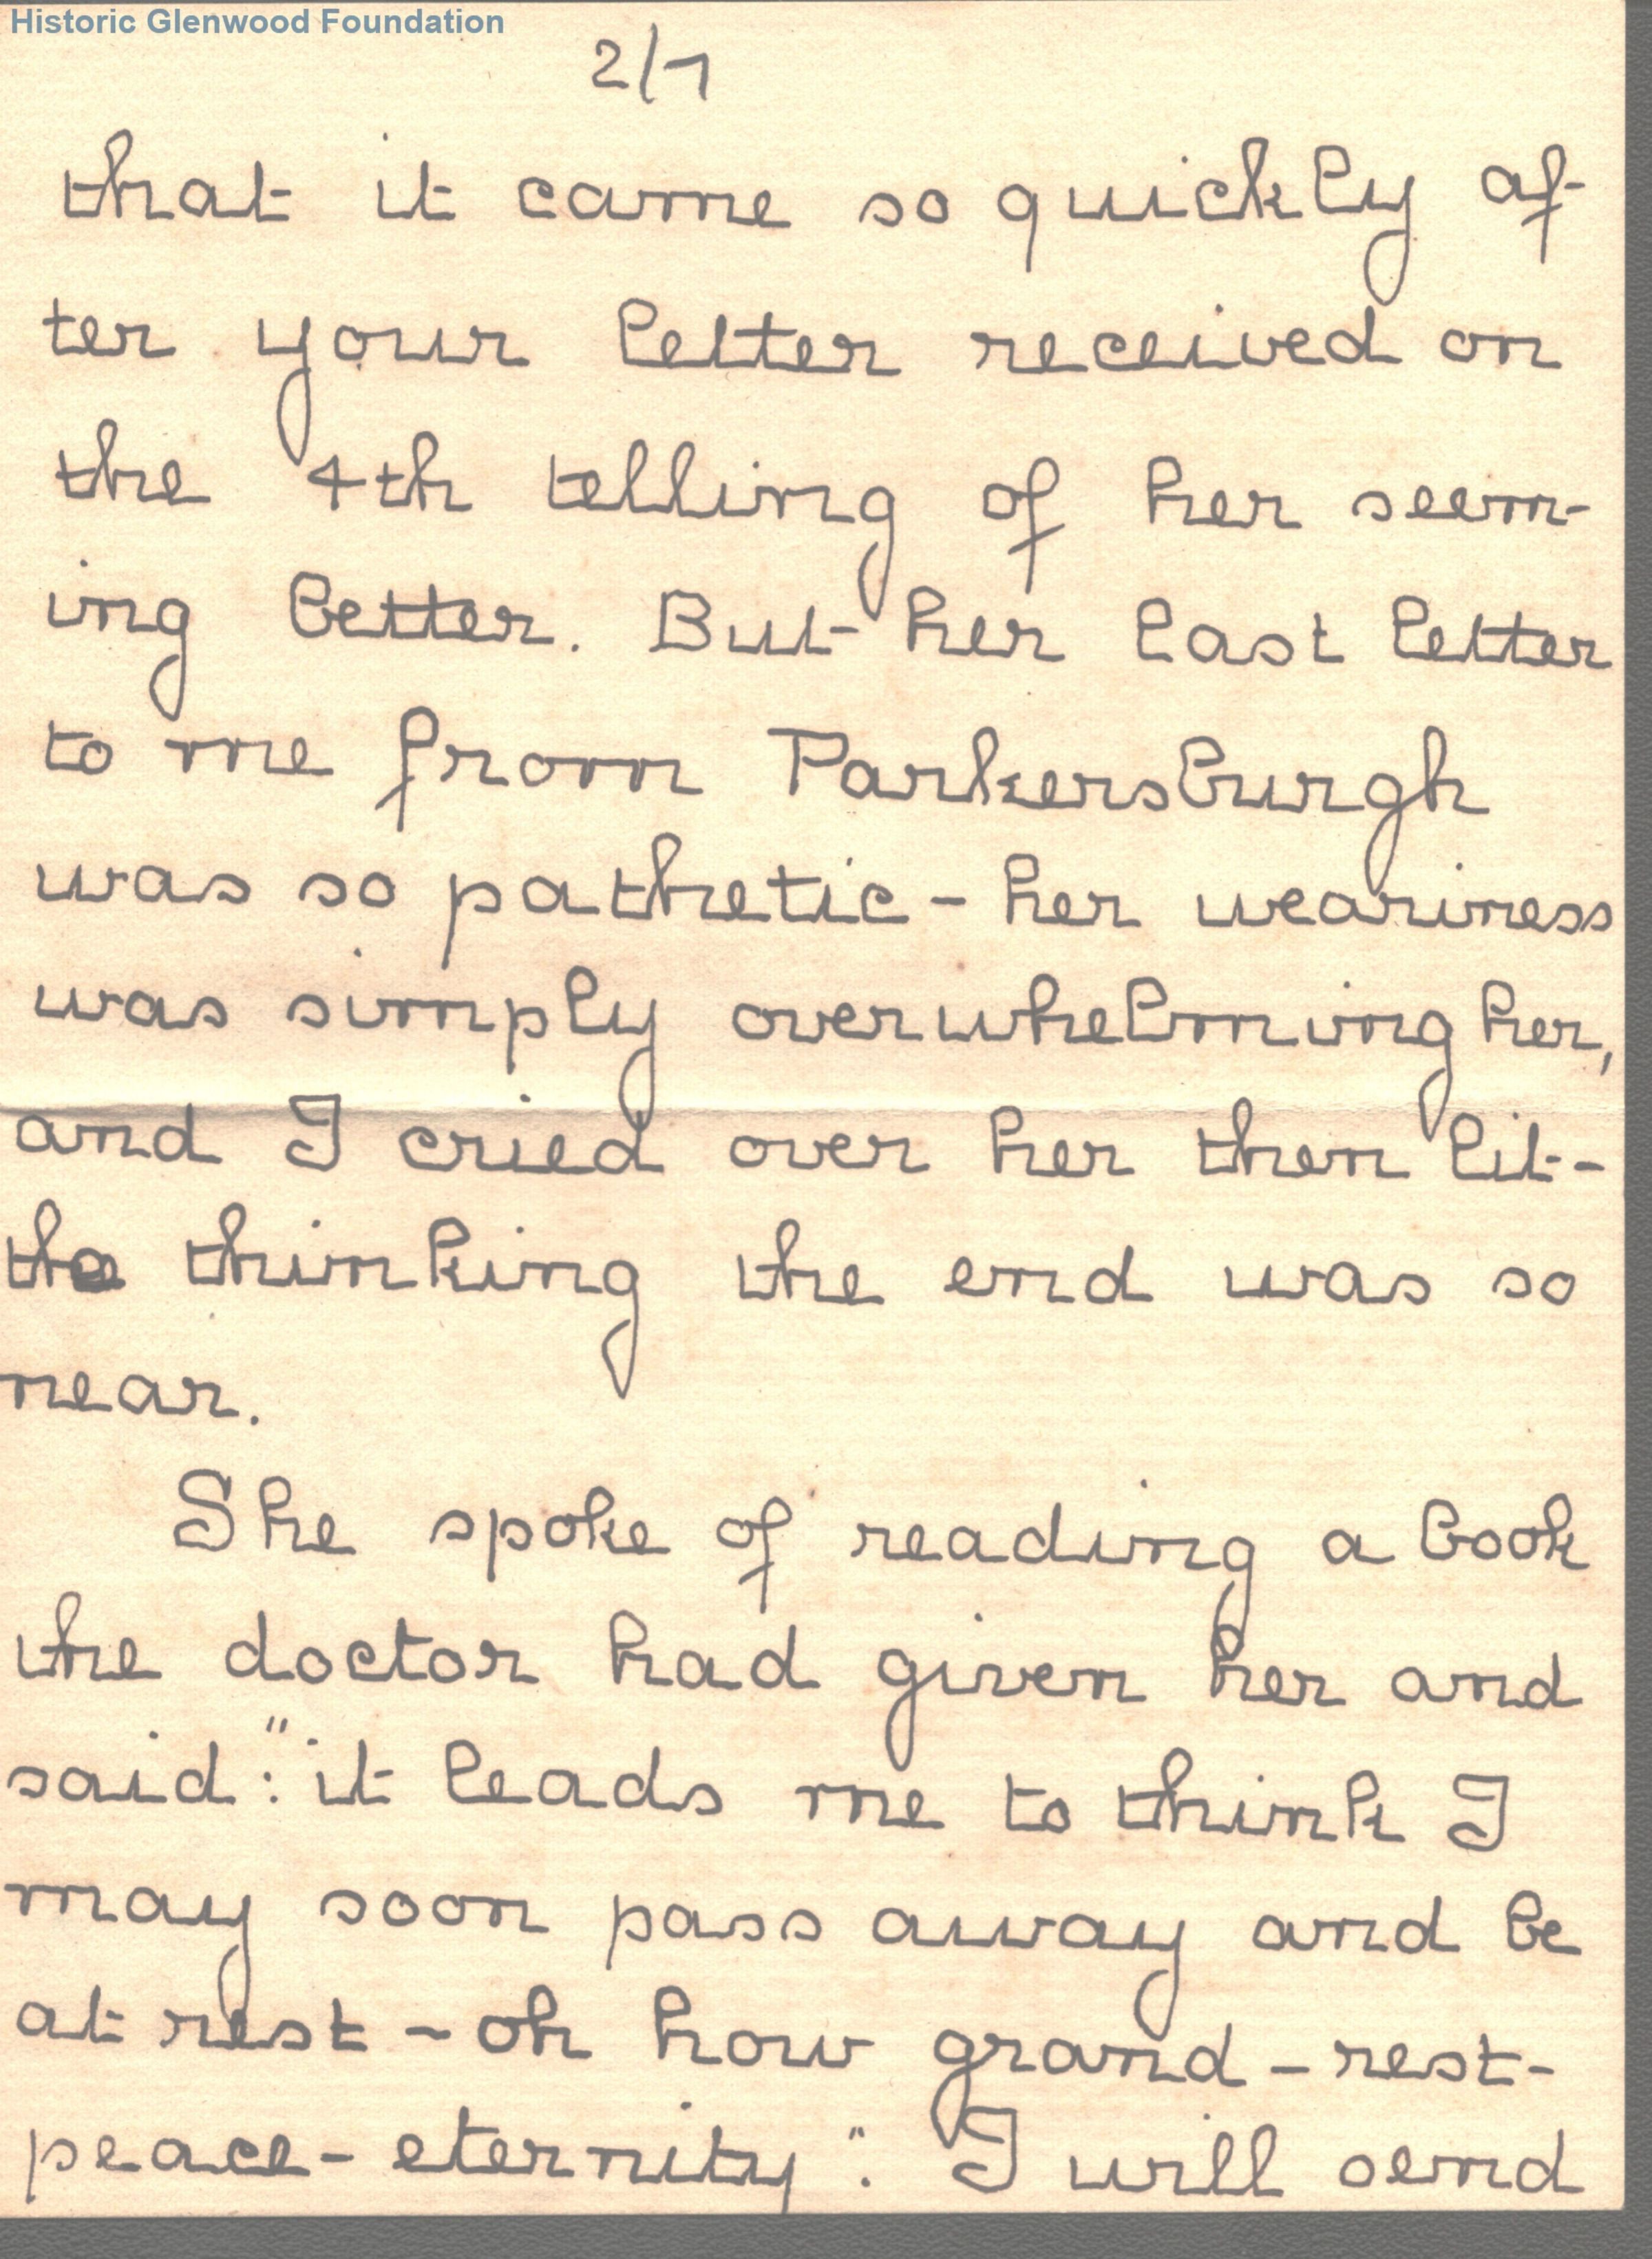 Historic Glenwood Foundation
2/7
that it came so quickly af-
ter your letter received on
the 4th telling of her seem-
ing better. But her last letter
to me from Parkersburgh
was so pathetic - her weariness
was simply overwhelming her,
and I cried over her then lit-
tle thinking the end was so
near.
She spoke of reading a book
the doctor had given her and
said: "it leads me to think I
may soon pass away and be
at rest - oh how grand - rest -
peace - eternity". I will send